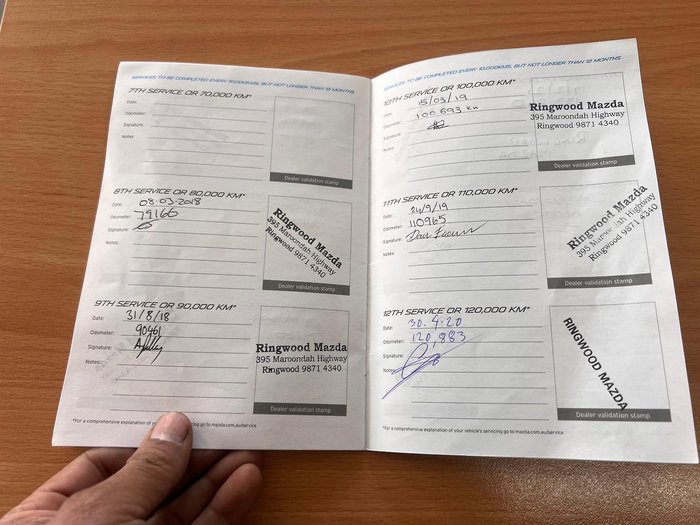 SERVICES TO BE COMPLETED EVERY 10,000KMS, BUT NOT LONGER THAN 12 MONTHS
7TH SERVICE OR 70,000 KM*
Date:
Odometer:
Signature:
Notes:
Dealer validation stamp
8TH SERVICE OR 80,000 KM*
Date: 08-03-2018
Odometer: 79166
Signature:
Notes:
Ringwood Mazda
395 Maroondah Highway
Ringwood 9871 4340
Dealer validation stamp
9TH SERVICE OR 90,000 KM*
Date: 31/8/18
Odometer: 90461
Signature:
Notes:
Ringwood Mazda
395 Maroondah Highway
Ringwood 9871 4340
Dealer validation stamp
*For a comprehensive explanation of your vehicle's servicing go to mazda.com.au/service
SERVICES TO BE COMPLETED EVERY 10,000KMS, BUT NOT LONGER THAN 12 MONTHS
10TH SERVICE OR 100,000 KM*
Date: 15/03/19
Odometer: 100693 km
Signature:
Notes:
Ringwood Mazda
395 Maroondah Highway
Ringwood 9871 4340
Dealer validation stamp
11TH SERVICE OR 110,000 KM*
Date: 24/9/19
Odometer: 110965
Signature:
Notes:
Ringwood Mazda
395 Maroondah Highway
Ringwood 9871 4340
Dealer validation stamp
12TH SERVICE OR 120,000 KM*
Date: 30.4.20
Odometer: 120,883
Signature:
Notes:
RINGWOOD MAZDA
Dealer validation stamp
*For a comprehensive explanation of your vehicle's servicing go to mazda.com.au/service